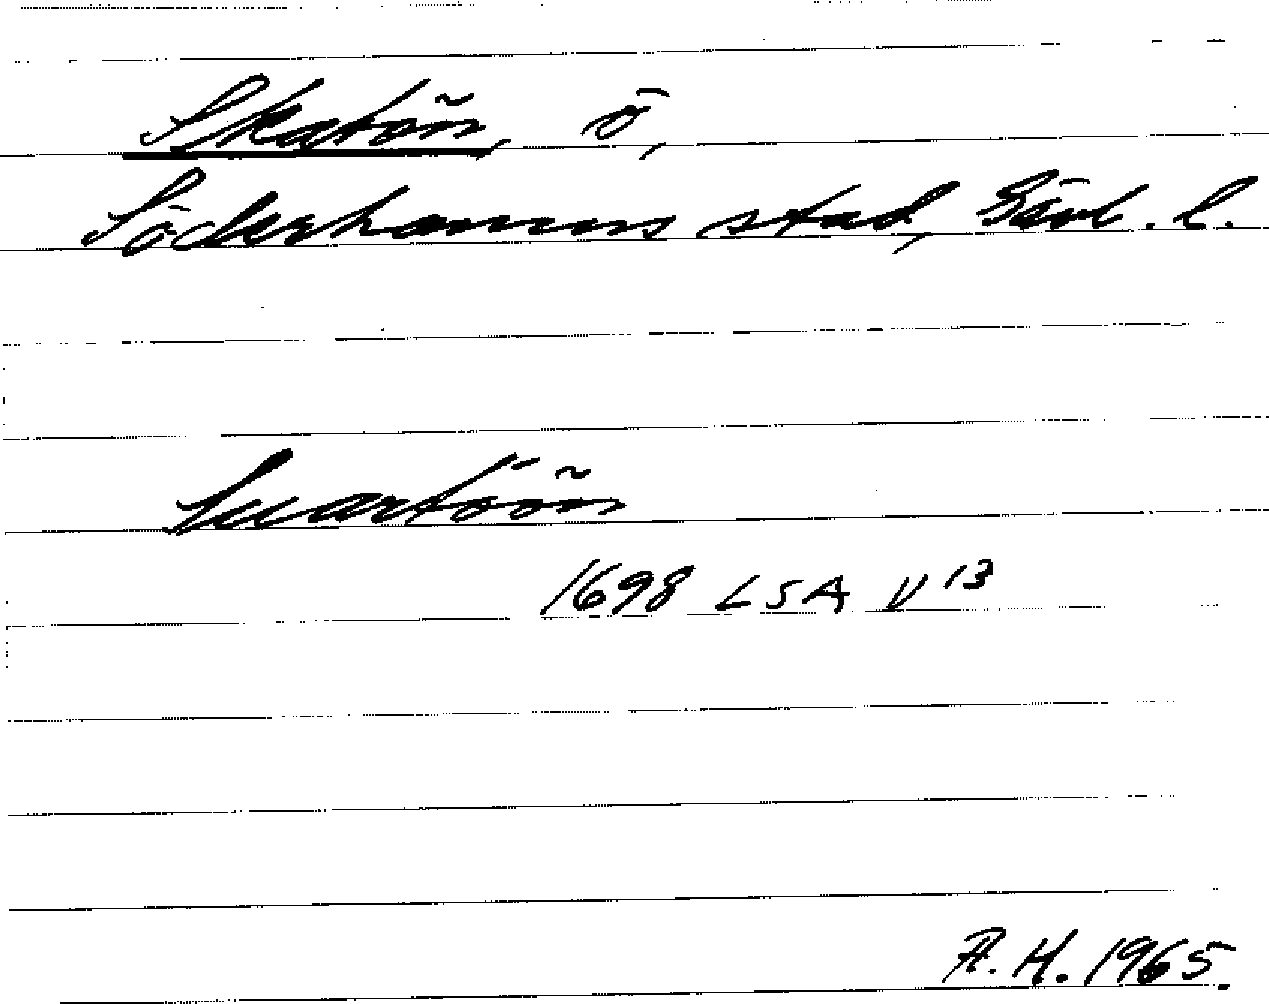 Skatön, ö,
Söderhamns stad, Gävl. l.
Svartöön
1698 LSA V 13
A.H. 1965.